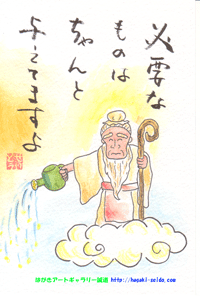 必要な
ものは
ちゃんと
与えてますよ
はがきアートギャラリー誠道 http://hagaki-seido.com/